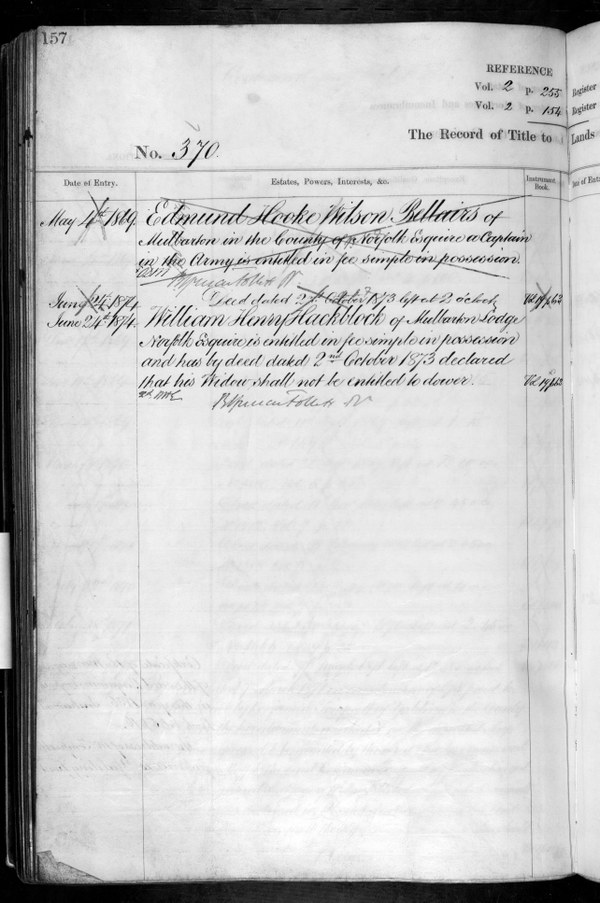 157
REFERENCE
Vol. 2 p. 255
Vol. 2 p. 154
Register
Register
The Record of Title to Lands
No. 370.
Date of Entry.
Estates, Powers, Interests, &c.
Instrument Book.
May 4th 1869.
Edmund Hooke Wilson Bellairs of
Mulbarton in the County of Norfolk Esquire a Captain
in the Army is entitled in fee simple in possession.
June 24th 1874.
Deed dated 2nd October 1873 left at 2 o'clock
June 24th 1874.
William Henry Hackblock of Mulbarton Lodge
Norfolk Esquire is entitled in fee simple in possession
and has by deed dated 2nd October 1873 declared
that his Widow shall not be entitled to dower.